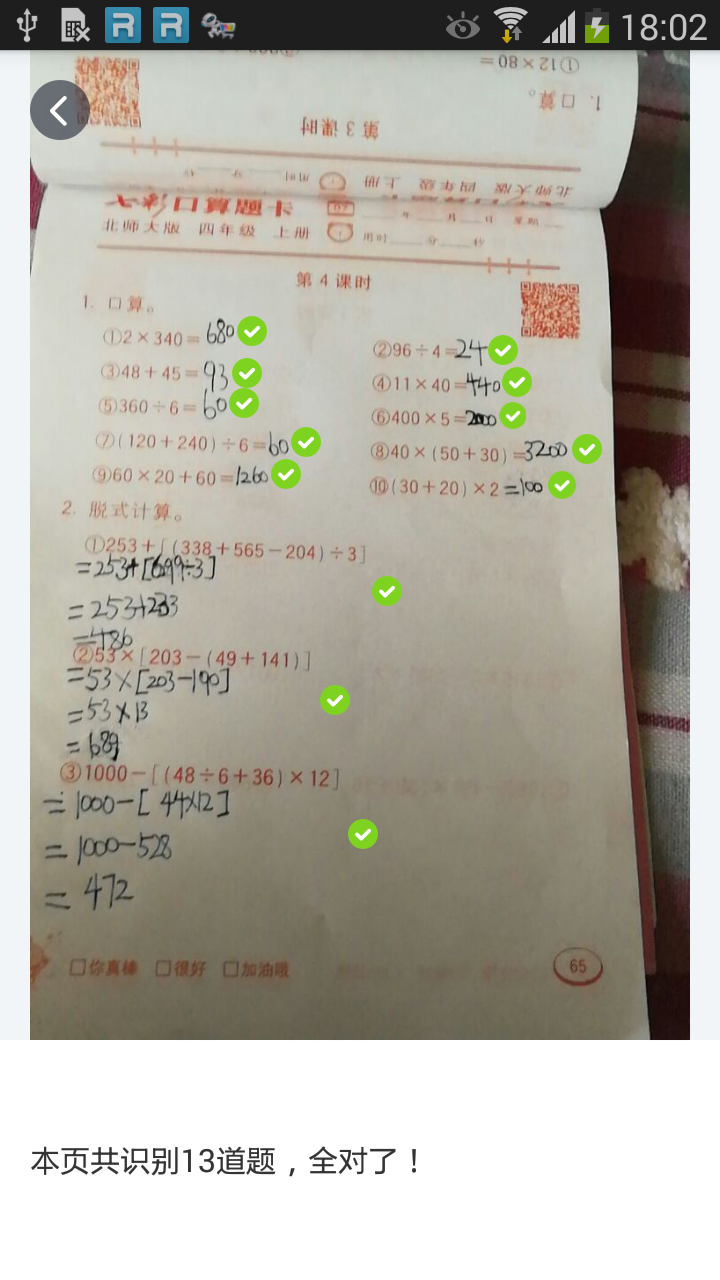 18:02
①12×80=
1. 口算。
第3课时
北师大版 四年级 上册 用时 分 秒
七彩口算题卡
年 月 日 星期
北师大版 四年级 上册 用时 分 秒
第4课时
1. 口算。
①2×340=680
②96÷4=24
③48+45=93
④11×40=440
⑤360÷6=60
⑥400×5=2000
⑦(120+240)÷6=60
⑧40×(50+30)=3200
⑨60×20+60=1260
⑩(30+20)×2=100
2. 脱式计算。
①253+[(338+565-204)÷3]
=253+[699÷3]
=253+233
=486
②53×[203-(49+141)]
=53×[203-190]
=53×13
=689
③1000-[(48÷6+36)×12]
=1000-[44×12]
=1000-528
=472
你真棒 很好 加油哦
65
本页共识别13道题，全对了！